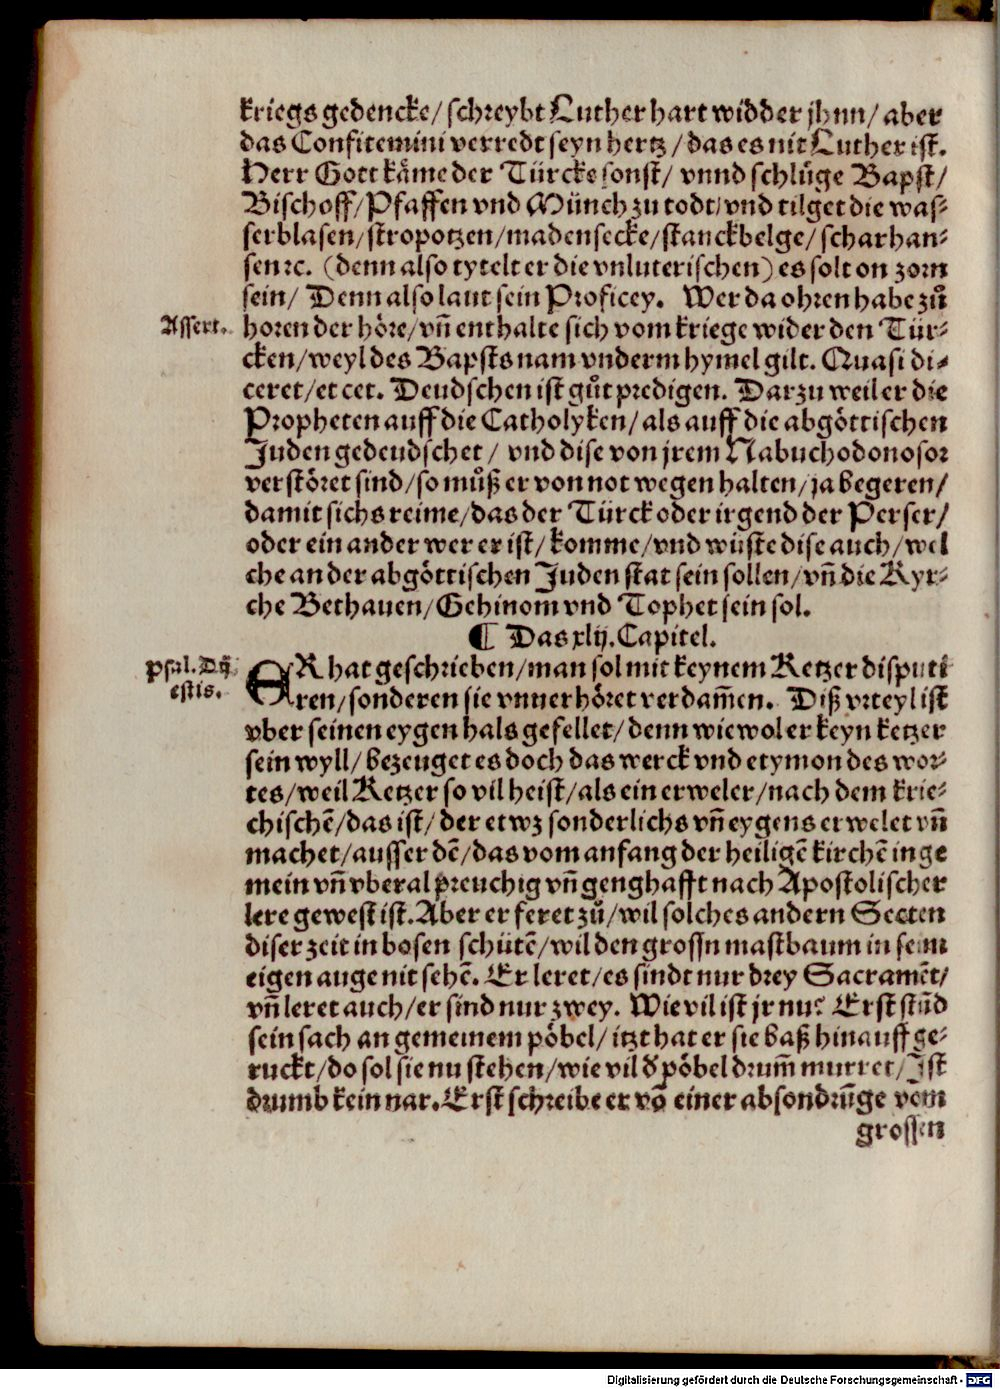 kriegs gedencke/ schreybt Luther hart widder jhnn/ aber
das Confitemini verredt seyn hertz/ das es nit Luther ist.
Herr Gott kåme der Türcke sonst/ vnnd schlůge Bapst/
Bischoff/ Pfaffen vnd Münch zu todt/ vnd tilget die was⸗
serblasen/ stropotzen/ madensecke/ stanckbelge/ scharhan⸗
sen ꝛc. (denn also tytelt er die vnluterischen) es solt on zorn
sein/ Denn also laut sein Proficey. Wer da ohren habe zů
Assert. horen der hôre/ vñ enthalte sich vom kriege wider den Tür⸗
cken/ weyl des Bapsts nam vnderm hymel gilt. Quasi di⸗
ceret/ et cet. Deudschen ist gůt predigen. Darzu weil er die
Propheten auff die Catholyken/ als auff die abgôttischen
Juden gedeudschet/ vnd dise von jrem Nabuchodonosor
verstôret sind/ so můß er von not wegen halten/ ja begeren/
damit sichs reime/ das der Türck oder irgend der Perser/
oder ein ander wer er ist/ komme/ vnd wüste dise auch/ wel
che an der abgôttischen Juden stat sein sollen/ vñ die Kyr⸗
che Bethauen/ Gehinom vnd Tophet sein sol.
¶ Das xlij. Capitel.
psal. Dñ ER hat geschrieben/ man sol mit keynem Ketzer disputi
estis. ren/ sonderen sie vnuerhôret verdam̃en. Diß vrteyl ist
vber seinen eygen hals gefellet/ denn wiewol er keyn ketzer
sein wyll/ bezeuget es doch das werck vnd etymon des wor⸗
tes/ weil Ketzer so vil heist/ als ein erweler/ nach dem krie⸗
chischẽ/ das ist/ der etwz sonderlichs vñ eygens erwelet vñ
machet/ ausser dẽ/ das vom anfang der heiligẽ kirchẽ in ge
mein vñ vberal preuchig vñ genghafft nach Apostolischer
lere gewest ist. Aber er feret zů/ wil solches andern Secten
diser zeit in bosen schütẽ/ wil den grossn mastbaum in seim
eigen auge nit sehẽ. Er leret/ es sindt nur drey Sacramẽt/
vñ leret auch/ er sind nur zwey. Wie vil ist jr nu? Erst stůd
sein sach an gemeinem pôbel/ itzt hat er sie baß hinauff ge⸗
ruckt/ do sol sie nu stehen/ wie vil ð pôbel drum̃ murret/ Ist
drumb kein nar. Erst schreibe er võ einer absondrũge vom
grossen
Digitalisierung gefördert durch die Deutsche Forschungsgemeinschaft - DFG